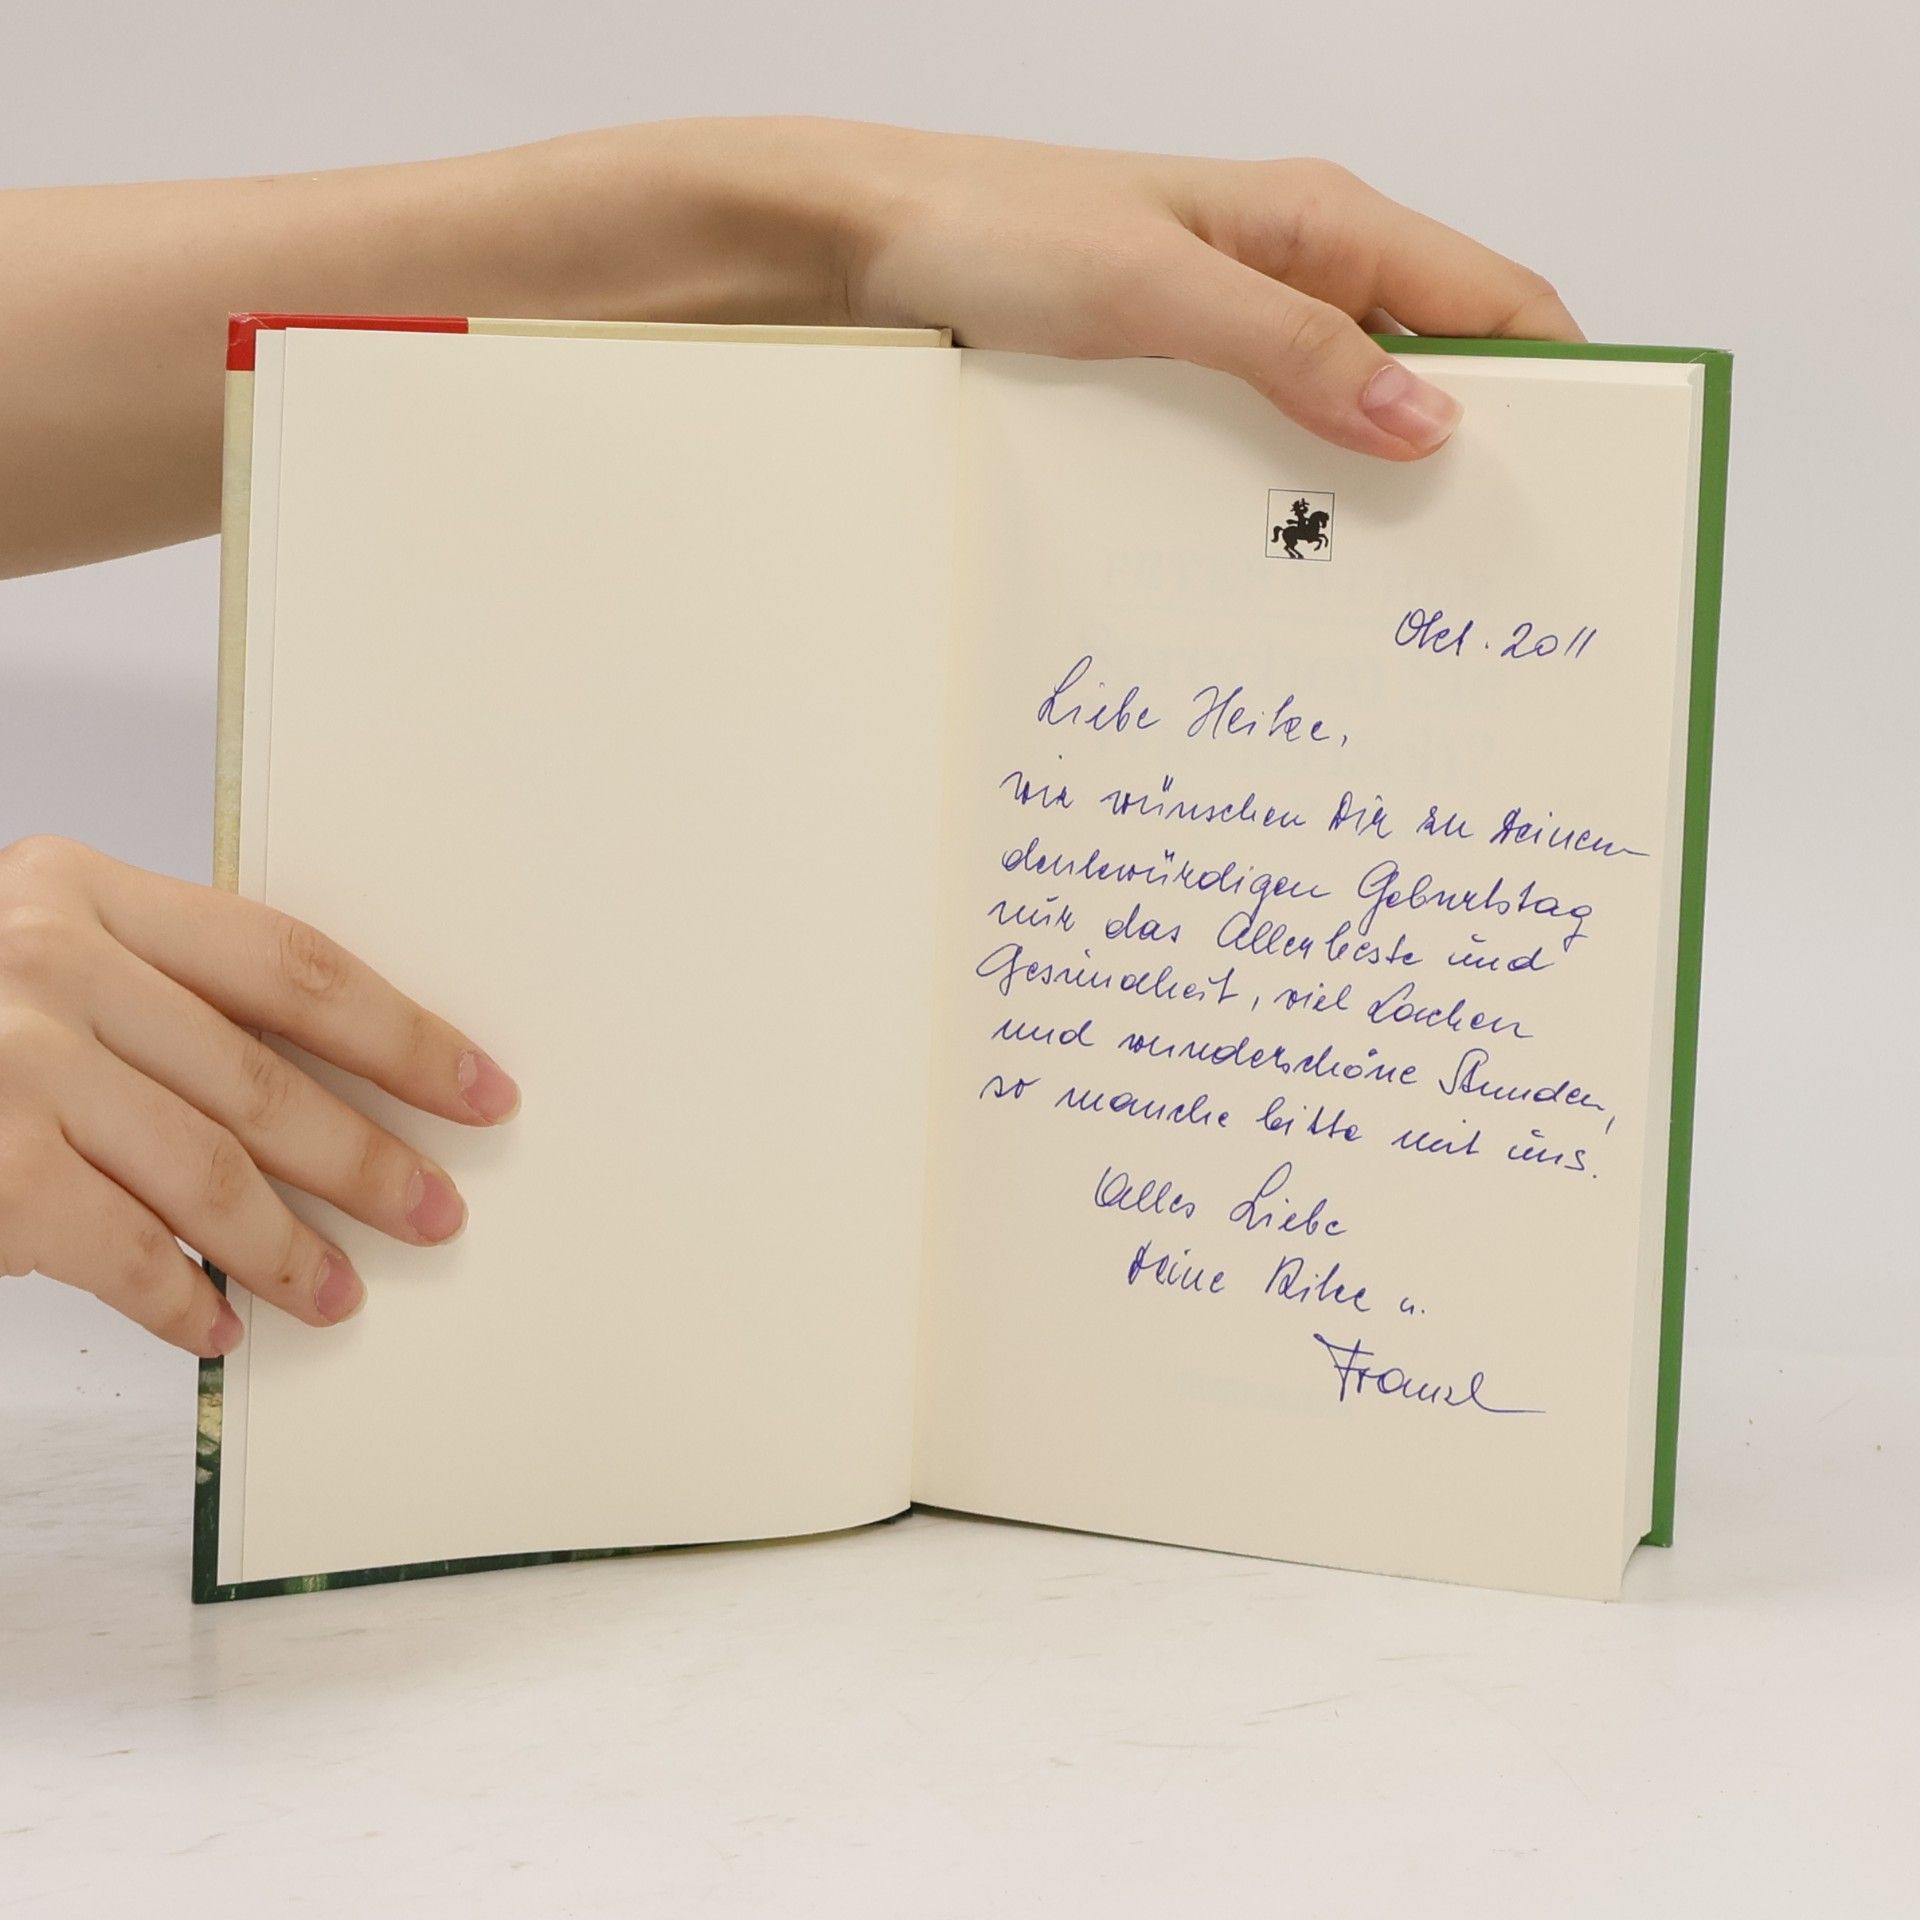 Okt. 2011
Liebe Heike,
wir wünschen Dir zu Deinem
denkwürdigen Geburtstag
nur das Allerbeste und
Gesundheit, viel Lachen
und wunderschöne Stunden,
so manche bitte mit uns.
Alles Liebe
Deine Rike u.
Franzl